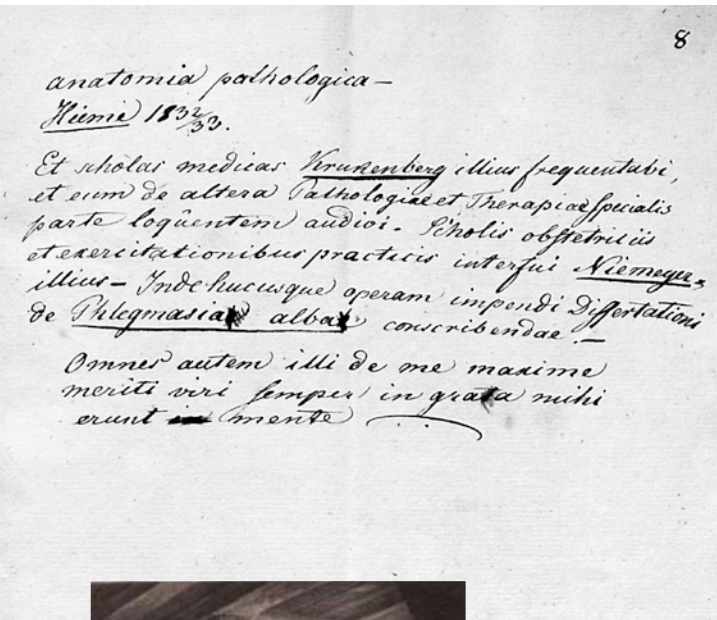 8
anatomia pathologica –
Hieme 1832/33.
Et scholas medicas Krukenberg illius frequentabi,
et eum de altera Pathologiae et Therapiae specialis
parte loqüentem audivi. Scholis obstetriciis
et exercitationibus practicis interfui Niemeyer
illius – Inde hucusque operam impendi Dissertationi
de Phlegmasia alba conscribendae. –
Omnes autem illi de me maxime
meriti viri semper in grata mihi
erunt mente